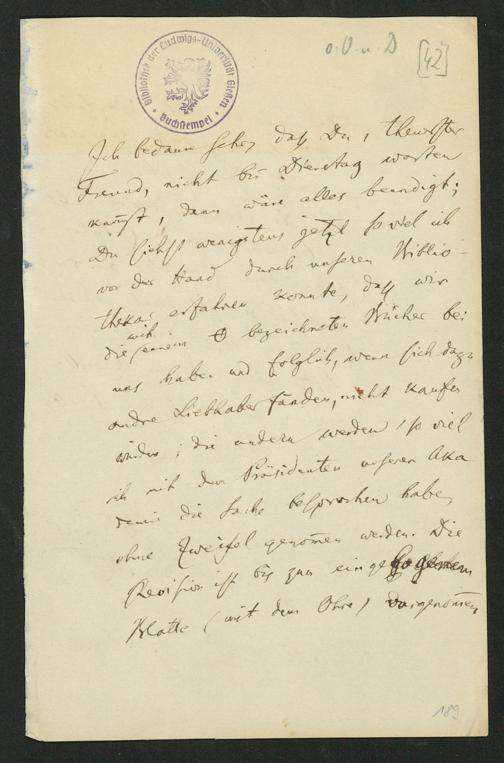 o. O. u. D
[42]
Bibliothek der Ludwigs-Universität Gießen
Buchstempel
Ich bedaure sehr, daß Du, theuerster
Freund, nicht bis Dienstag warten
kannst, dann wäre alles beendigt;
Du siehst wenigstens jetzt so viel ich
vor der Hand durch unseren Biblio-
thekar erfahren konnte, daß wir
die mit einem O bezeichneten Bücher bei
uns haben und folglich, wenn sich dazu
andre Liebhaber fänden, nicht kaufen
würden; die andern werden, so viel
ich mit dem Präsidenten unserer Aka
demie die Sache besprochen habe,
ohne Zweifel genommen werden. Die
Revision ist bis zum eingebogenen
Blatte (mit dem Ohre) vorgenommen
189